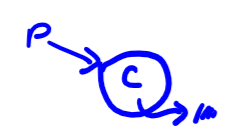 P
C
m